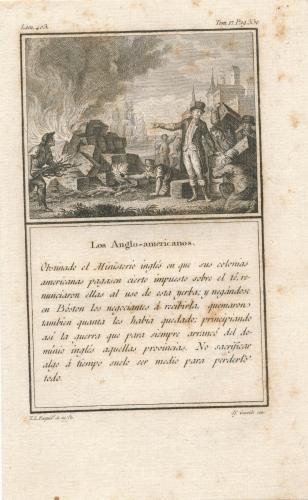 Lam. 403.
Tom. 17. Pag. 330.
Los Anglo-americanos.
Obstinado el Ministerio inglés en que sus colonias
americanas pagasen cierto impuesto sobre el té, re-
nunciaron ellas al uso de esta yerba; y negándose
en Bóston los negociantes á recibirla, quemaron
tambien quanta les habia quedado; principiando
así la guerra que para siempre arrancó del do-
minio inglés aquellas provincias. No sacrificar
algo á tiempo suele ser medio para perderlo
todo.